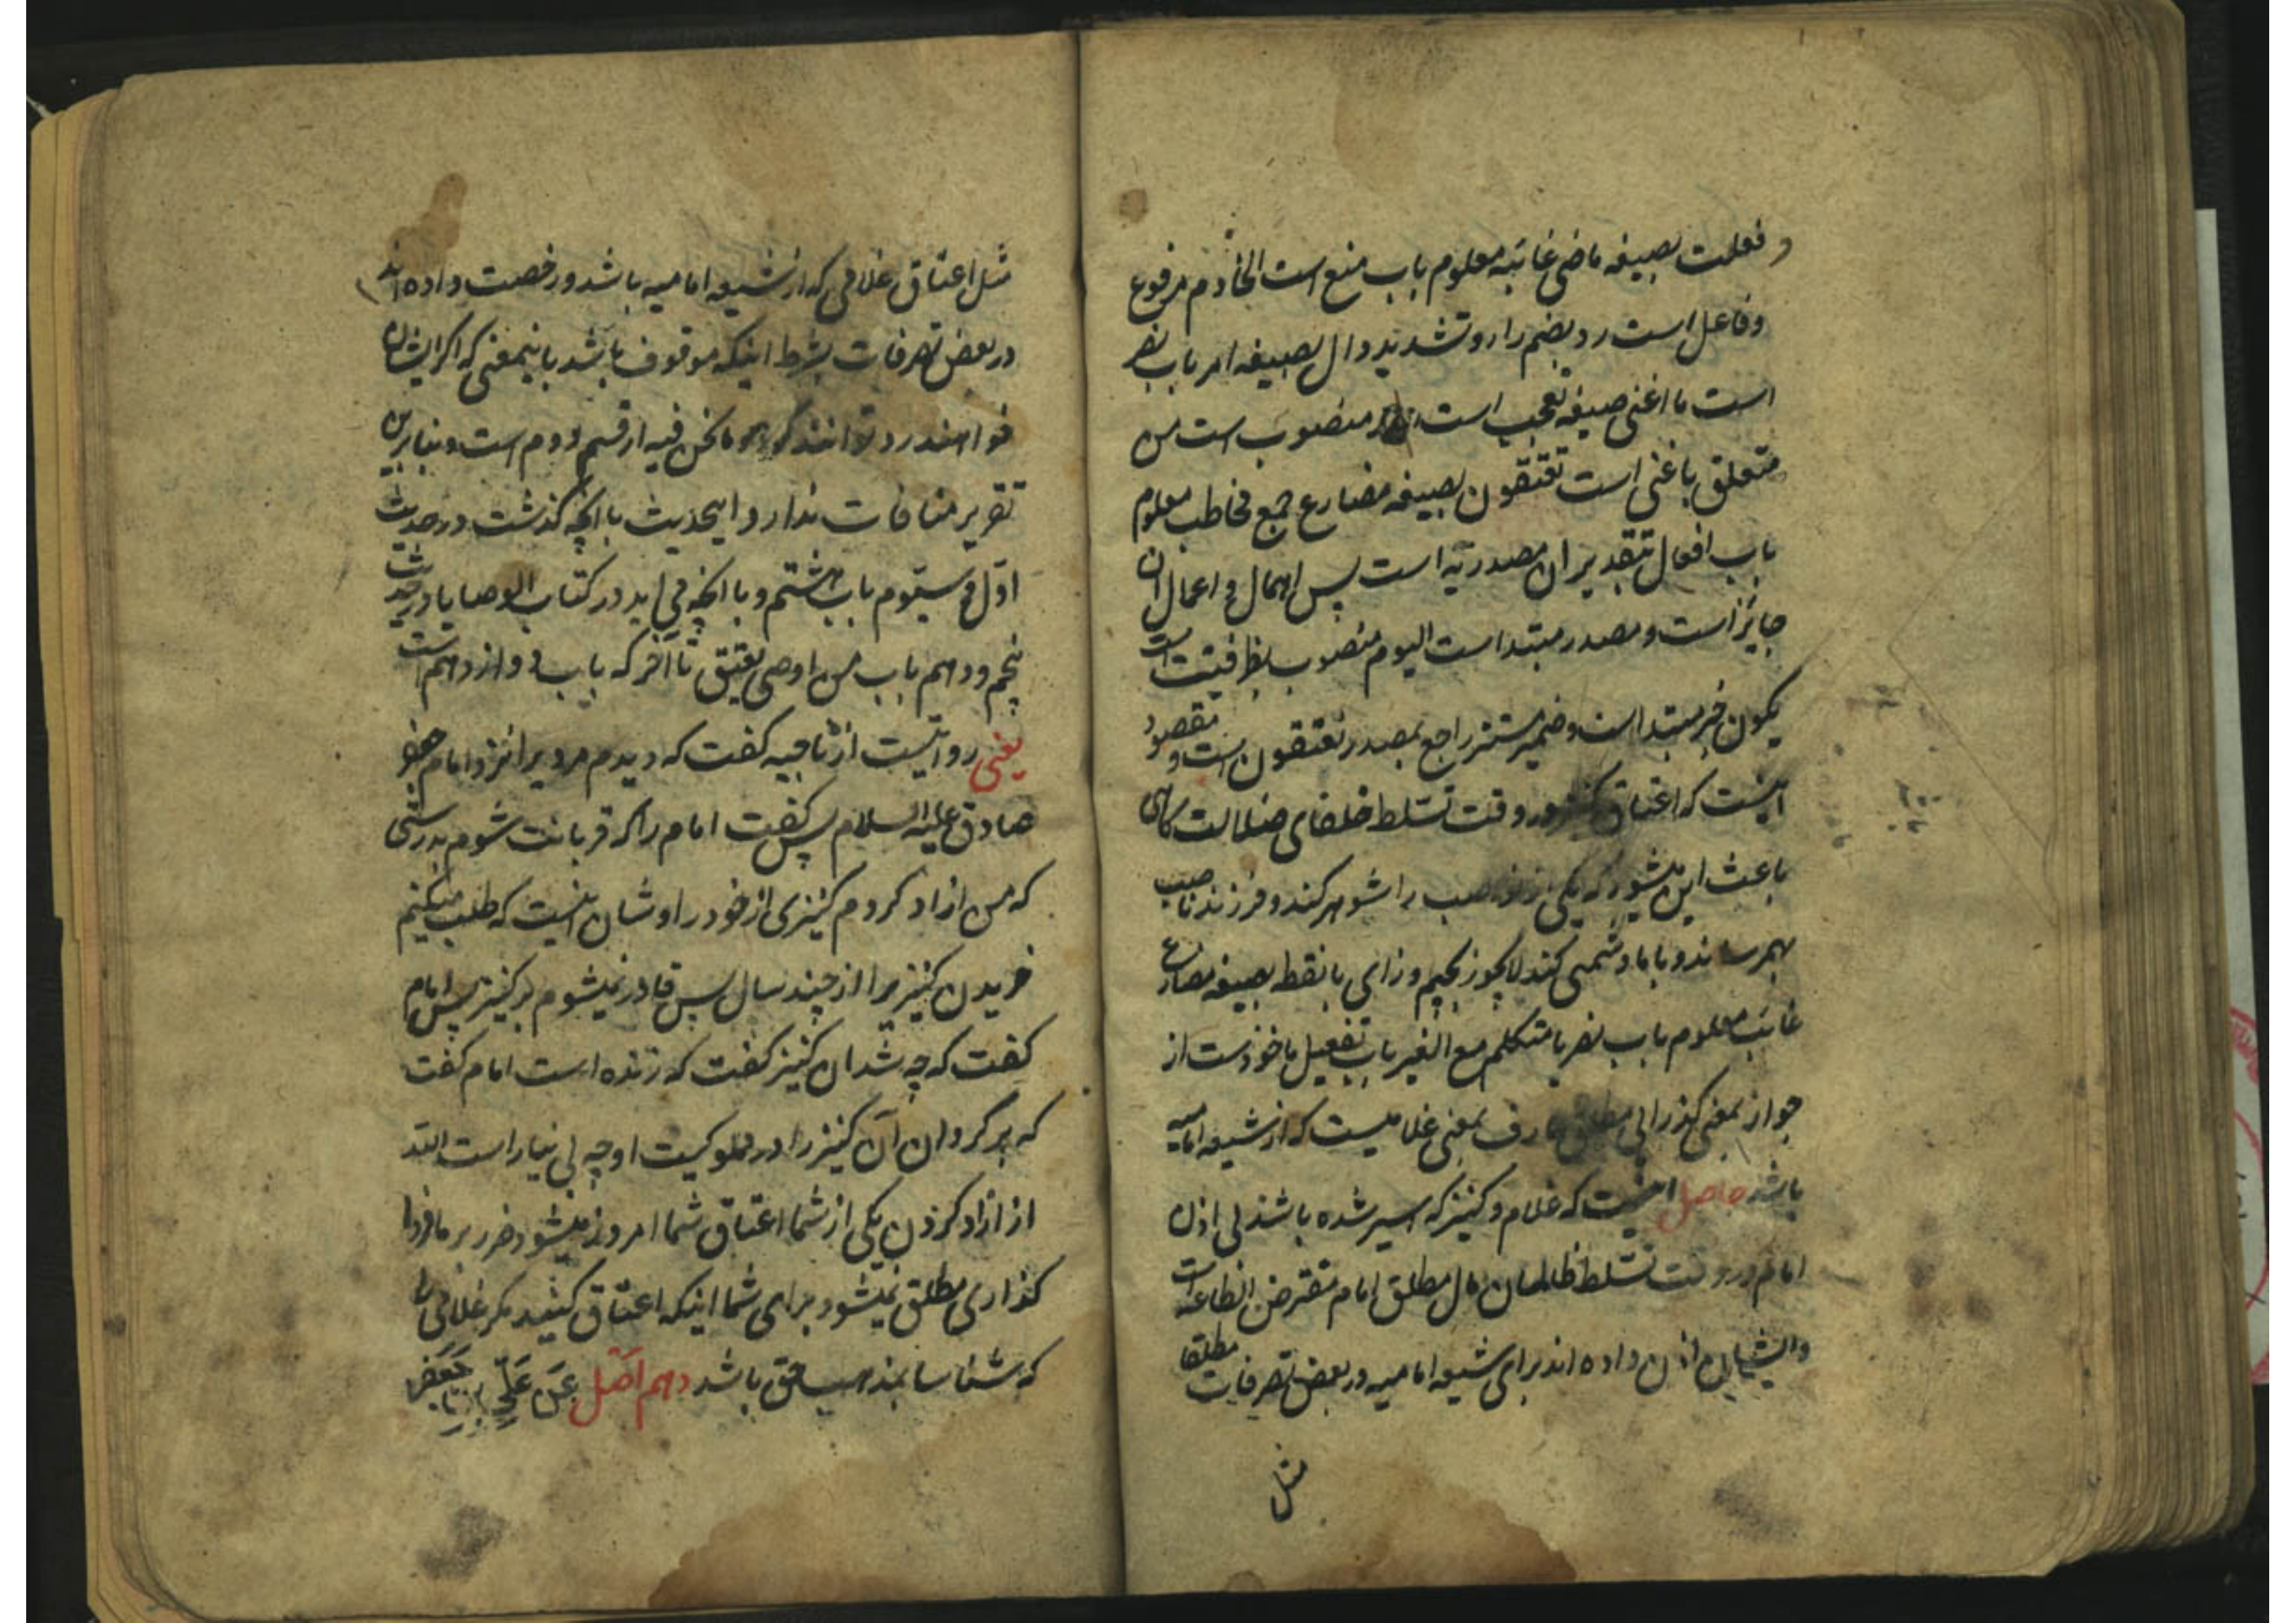 فعلت بصیغه ماضی غائبه معلوم باب منع است الخادم مرفوع
و فاعل است رد بضم را و تشدید دال بصیغه امر باب نصر
است ما اغنی صیغه تعجب است منصوب است من
متعلق باغنی است تعتقون بصیغه مضارع جمع مخاطب معلوم
باب افعال بتقدیر ان مصدریه است پس اهمال و اعمال ان
جایز است و مصدر مبتداست الیوم منصوب بظرفیت است
یکون خبر مبتداست و ضمیر مستتر راجع بمصدر تعتقون است و مقصود
اینست که اعتاق کنیز در وقت تسلط خلفای ضلالت گاهی
باعث این میشود که یکی از نواصب را شوهر کند و فرزند ناصب
بهم رساند و با ما دشمنی کند لایجوز بجیم و زای با نقطه بصیغه مضارع
غائب معلوم باب نصر یا متکلم مع الغیر باب تفعیل ماخوذست از
جواز بمعنی گذرایی مطلق عارف بمعنی غلامیست که از شیعه امامیه
باشد حاصل اینست که غلام و کنیز که اسیر شده باشند بی اذن
امام در وقت تسلط ظالمان مال مطلق امام مفترض الطاعة است
و ایشان اذن داده اند برای شیعه امامیه در بعض تصرفات مطلقا
مثل
مثل اعتاق غلامی که از شیعه امامیه باشد و رخصت داده اند
در بعض تصرفات بشرط اینکه موقوف باشد باینمعنی که اگر ایشان
خواهند رد توانند کرد و ما نحن فیه از قسم دوم است و بنابرین
تقریر منافات ندارد اینحدیث با انچه گذشت در حدیث
اول و سیوم باب هشتم و با انچه می اید در کتاب الوصایا در حدیث
پنجم و دهم باب من اوصی بعتق تا آخر که باب دوازدهم است
یعنی روایتست از ناجیه گفت که دیدم مردیرا نزد امام جعفر
صادق علیه السلام پس گفت امام را که قربانت شوم بدرستی
که من ازاد کردم کنیزی از خود را و شان اینست که طلب میکنم
خریدن کنیز را از چند سال پس قادر نمیشوم بر کنیز پس امام
گفت که چه شد ان کنیز گفت که زنده است امام گفت
که برگردان آن کنیز را در مملوکیت او چه بی نیاز است الله
از ازاد کردن یکی از شما اعتاق شما امروز میشود ضرر بر ما فردا
گذاری مطلق نمیشود برای شما اینکه اعتاق کنید مگر غلامی را
که شناسا بمذهب حق باشد دهم اصل عن علی بن جعفر